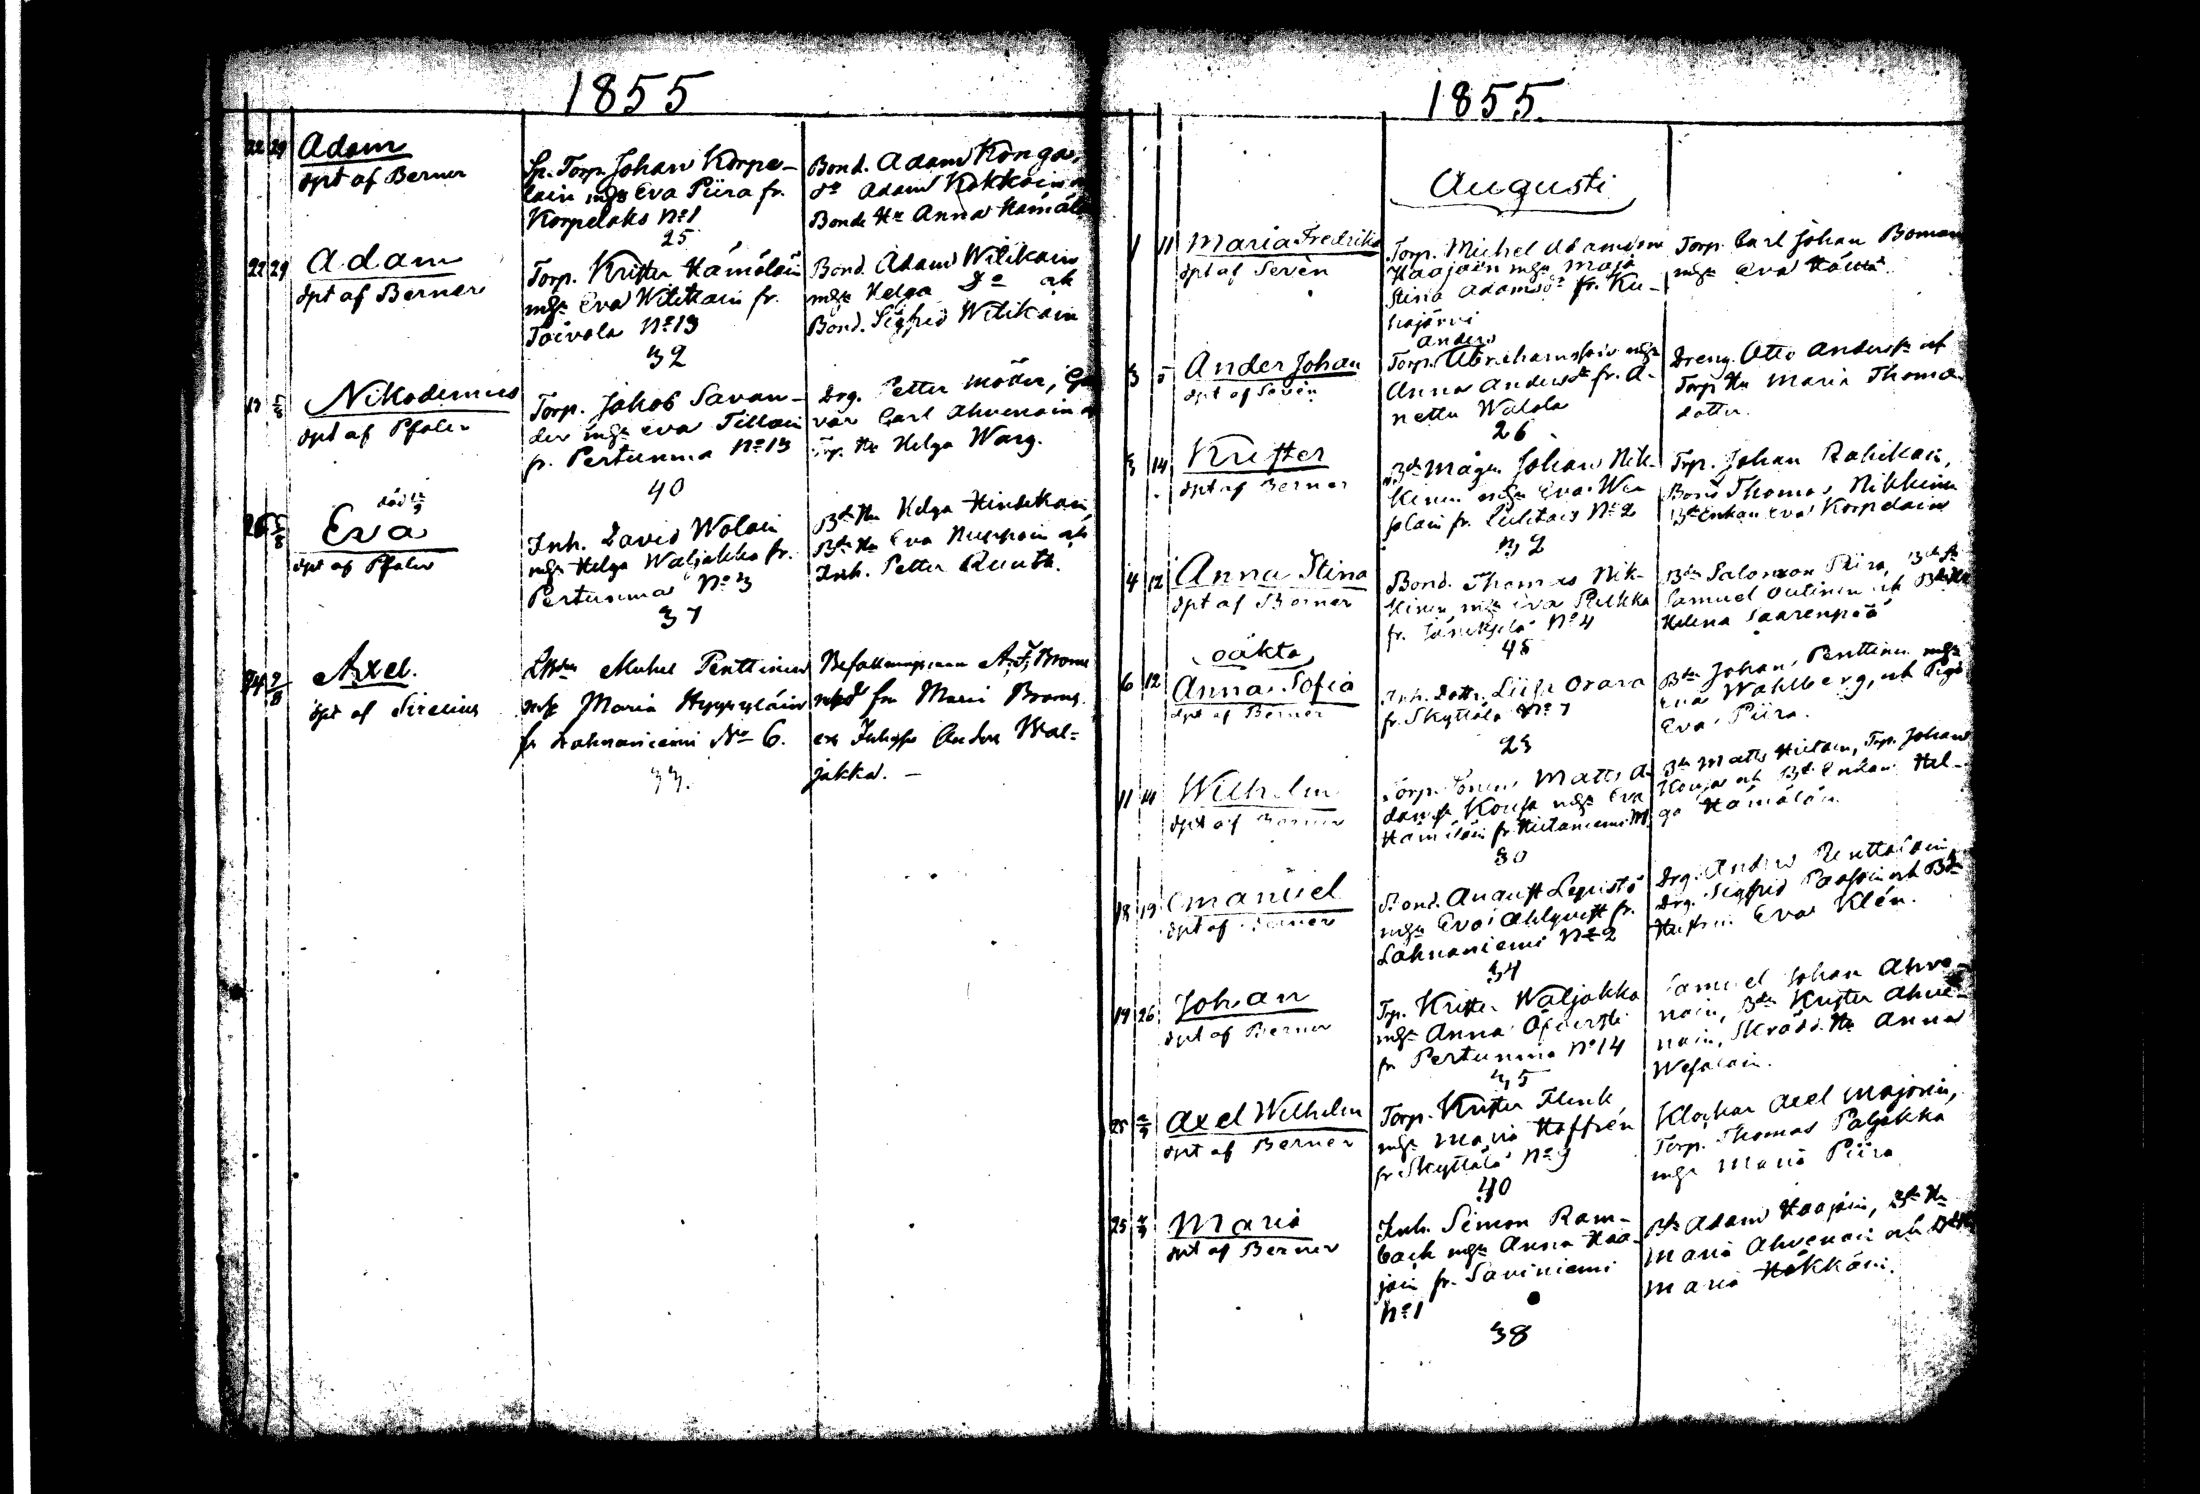 1855
22 29 Adam
dpt af Berner
Sp. Torp. Johan Korpe-
lain mgs Eva Piira fr.
Korpelaks No 1
25
Bond. Adam Konga,
do Adam Kokkoin
Bonde Hu Anna Hämäl
22 29 Adam
dpt af Berner
Torp. Krister Hämäläin
mgs Eva Witikain fr.
Toivola No 13
32
Bond. Adam Witikain
mgs Helga Do och
Bond. Sigfrid Witikain
Nikodemus
dpt af Pfaler
Torp. Jakob Savan-
der mgs Eva Tillain
fr. Pertunma No 13
40
Drg. Petter Möder,
var Carl Ahvenain
Trp. Hu Helga Warg.
död
26 5/8 Eva
dpt af Pfaler
Inh. David Wolain
mgs Helga Waljakka fr.
Pertunma No 3
37
Bds Hu Helga Hindikain,
Bds Hu Eva Nuppoin och
Inh. Petter Ruuth.
Axel.
dpt af Sirelius
Michel Penttinen
Maria Hyyryläin
fr Lahnaniemi No 6.
33.
Befallningsman A. F. Broms
fru Maria Broms.
Anders Wal=
jakka. —
1855.
Augusti
1 11 Maria Fredrika
dpt af Sevén
Torp. Michel Adamsson
Haajain mgs Maja
Stina Adamsdr fr. Ku-
hajärvi
Torp. Carl Johan Boman
mgs Eva
3 5 Ander Johan
dpt af Sevén
Anders
Torp. Abrahamsson mgs
Anna Andersdr fr. A-
nettu Walola
26
Dreng. Otto Anders och
Torp Hu Maria Thomas
dotter.
3 14 Krister
dpt af Berner
Bds mågen Johan Nik-
kinen mgs Eva We
polain fr. No 2
32
Trp. Johan Rahikain,
Bond Thomas Nikkinen
Bds Enkan Eva Korpelain
4 12 Anna Stina
dpt af Berner
Bond. Thomas Nik-
kinen mgs Eva Pulkka
fr. No 4
45
Bds Salomon Piira, Bds
Samuel Outinen och
Helena Saarenpää
oäkta
6 12 Anna Sofia
dpt af Berner
Inh. Dottr. Liisa Orara
fr. Skyttälä No 7
23
Bds Johan Penttinen mgs
Eva Wahlberg, och Pigo
Eva Piira.
11 14 Wilhelm
dpt af Berner
Torp. Sonen Matts A-
dams Konga mgs Eva
Hämäläin fr. Hietaniemi
30
Bds Matts Hietain, Trp. Johan
Konga och Bds Enkan Hel-
ga Hämäläin
18 19 Emanuel
dpt af Berner
Bond. August Lepistö
mgs Eva Ahlqvist fr.
Lahnaniemi No 2
34
Drg. Anders Penttoläin,
Drg. Sigfrid och Bds
Hustrun Eva Klén.
19 26 Johan
dpt af Berner
Trp. Krister Waljakka
mgs Anna
fr Pertunma No 14
35
Samuel Johan Ahve-
nain, Bds Krister Ahve-
nain, Skrädd. Hu Anna
Wesalain.
25 2/9 Axel Wilhelm
dpt af Berner
Torp. Krister Flink
mgs Maria Hoffrén
fr. Skyttälä No 9
40
Klockar Axel Majorin,
Torp. Thomas Paljakka
mgs Maria Piira
25 2/9 Maria
dpt af Berner
Inh. Simon Ram-
back mgs Anna Haa-
jain fr. Saviniemi
No 1
38
Bds Adam Haajain, Bds Hu
Maria Ahvenain och
Maria Häkkäin.